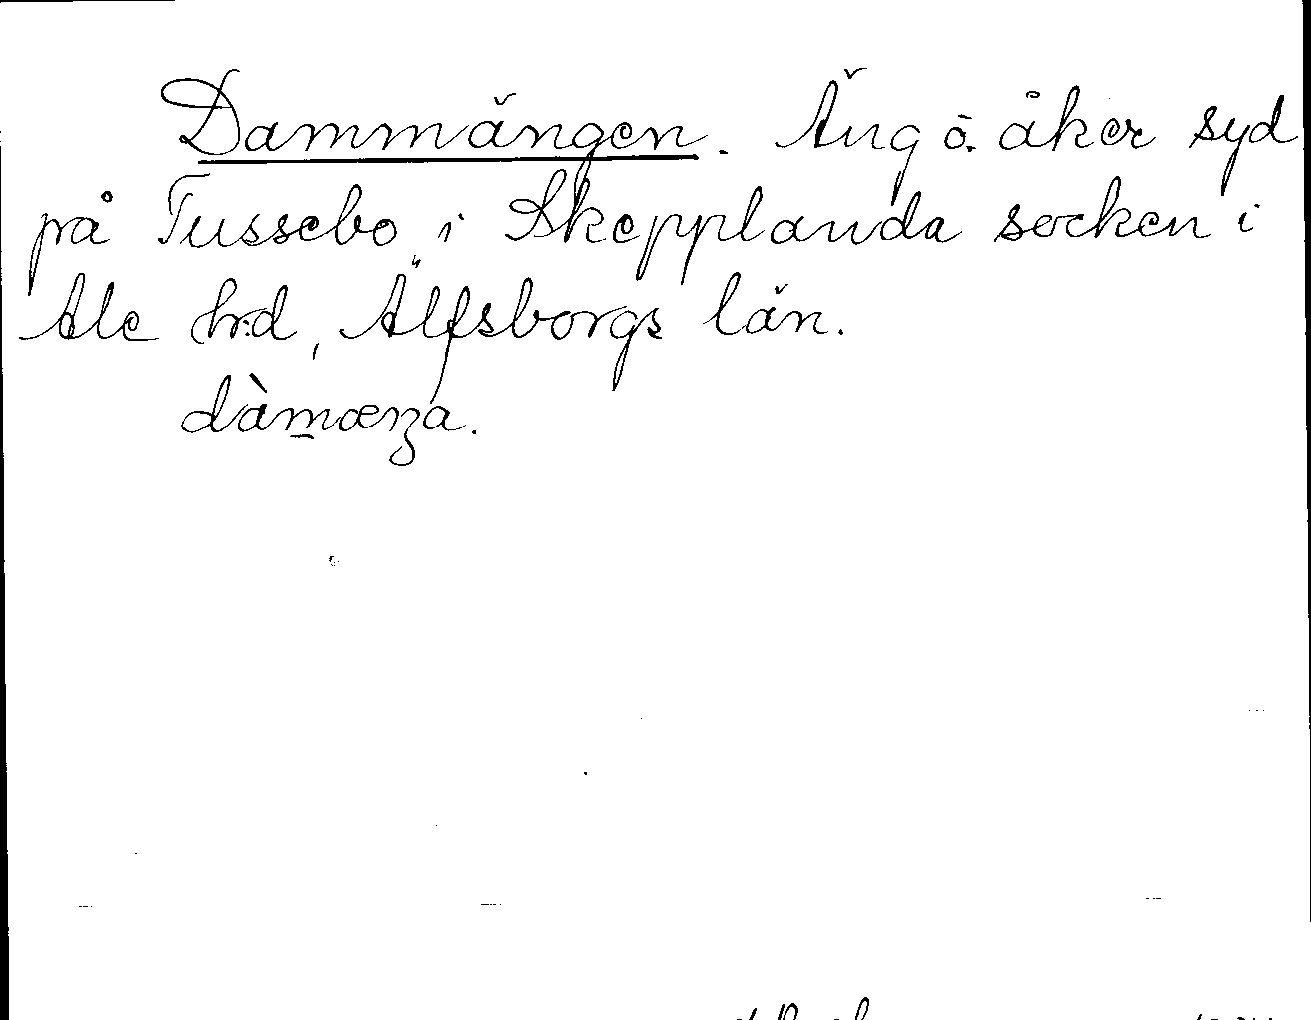 Dammängen. Äng o. åker syd
på Tussebo i Skepplanda socken i
Ale hrd, Älfsborgs län.
dàm̲æŋa.